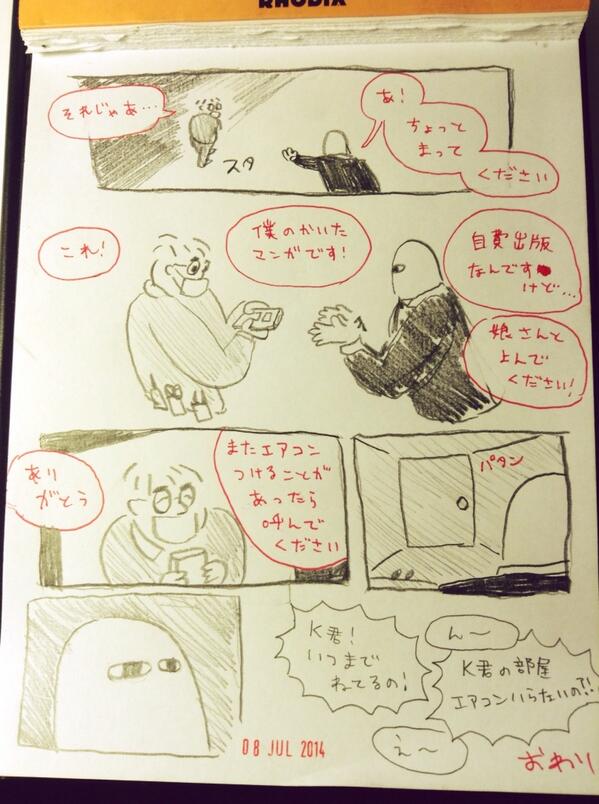 RHODIA
それじゃあ…
あ!
ちょっと
まって
ください
スタ
これ!
僕のかいた
マンガです!
自費出版
なんです
けど…
娘さんと
よんで
ください!
あり
がとう
またエアコン
つけることが
あったら
呼んで
ください
パタン
K君!
いつまで
ねてるの!
ん〜
K君の部屋
エアコンいらないの?!
え〜
08 JUL 2014
おわり